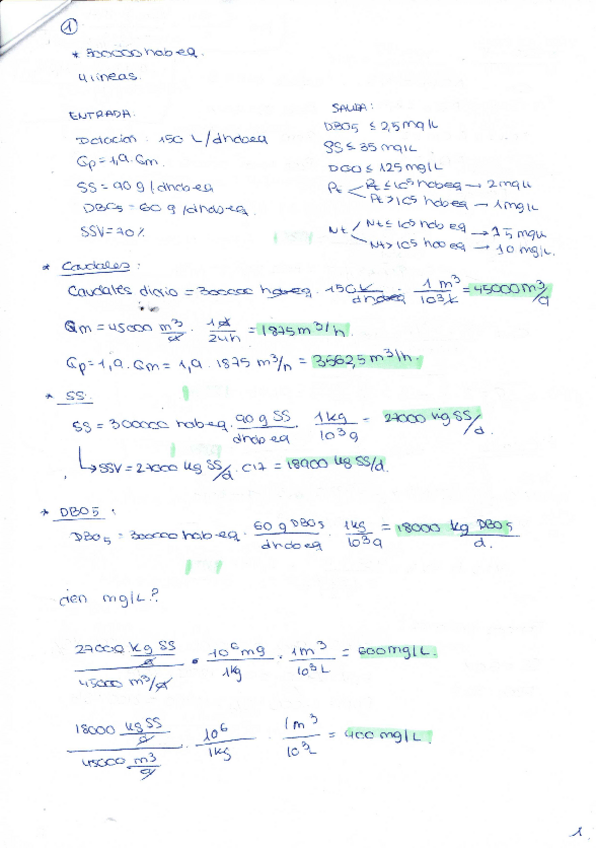 1
* 300000 hab eq.
4 líneas.
ENTRADA.
Dotación: 150 L/dhabeq
Qp = 1,9 · Qm.
SS = 90 g/dhabeq
DBO5 = 60 g/dhabeq.
SSV = 70%
SALIDA:
DBO5 ≤ 25 mg/L
SS ≤ 35 mg/L
DQO ≤ 125 mg/L
Pt < Pt ≤ 10⁵ hab eq → 2 mg/L
Pt > 10⁵ hab eq → 1 mg/L
Nt < Nt ≤ 10⁵ hab eq → 15 mg/L
Nt > 10⁵ hab eq → 10 mg/L.
* Caudales:
Caudales diario = 300000 habeq · 150 L/dhabeq · 1 m³/10³ L = 45000 m³/d
Qm = 45000 m³/d · 1d/24h = 1875 m³/h.
Qp = 1,9 · Qm = 1,9 · 1875 m³/h = 3562,5 m³/h.
* SS.
SS = 300000 hab eq · 90 g SS/dhab eq · 1 kg/10³ g = 27000 kg SS/d.
↳ SSV = 27000 kg SS/d · 0,7 = 18900 kg SS/d.
* DBO5:
DBO5 = 300000 hab eq · 60 g DBO5/dhab eq · 1 kg/10³ g = 18000 kg DBO5/d.
¿en mg/L?
27000 kg SS/d / 45000 m³/d · 10⁶ mg/1 kg · 1 m³/10³ L = 600 mg/L.
18000 kg SS/d / 45000 m³/d · 10⁶/1 kg · 1 m³/10³ L = 400 mg/L.
1